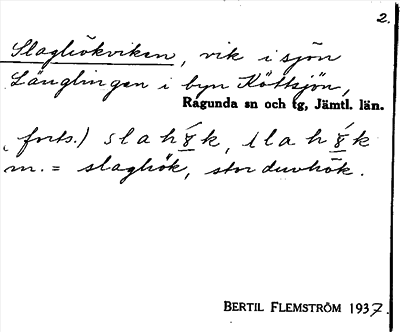 2.
Slaghökviken, vik i sjön
Långlingen i byn Köttsjön,
Ragunda sn och tg, Jämtl. län.
(forts.)
m. = slaghök, stor duvhök.
BERTIL FLEMSTRÖM 1937.